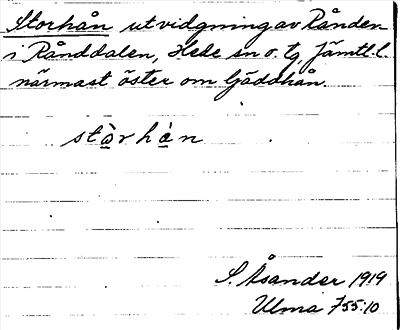 Storhån utvidgning av Rånden
i Rånddalen, Hede sn o. tg, Jämtl. l.
närmast öster om Gäddhån.
stọ̀rhạ̀n
S. Åsander 1919
Ulma 755:10